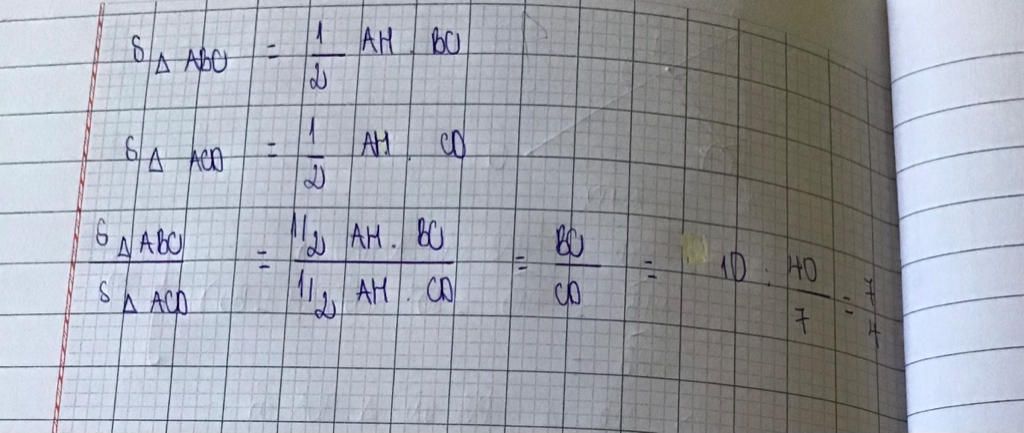 S Δ ABC = 1/2 AH . BC
S Δ ACD = 1/2 AH . CD
S Δ ABC / S Δ ACD = (1/2 AH . BC) / (1/2 AH . CD) = BC / CD = 10 : 40/7 = 7/4